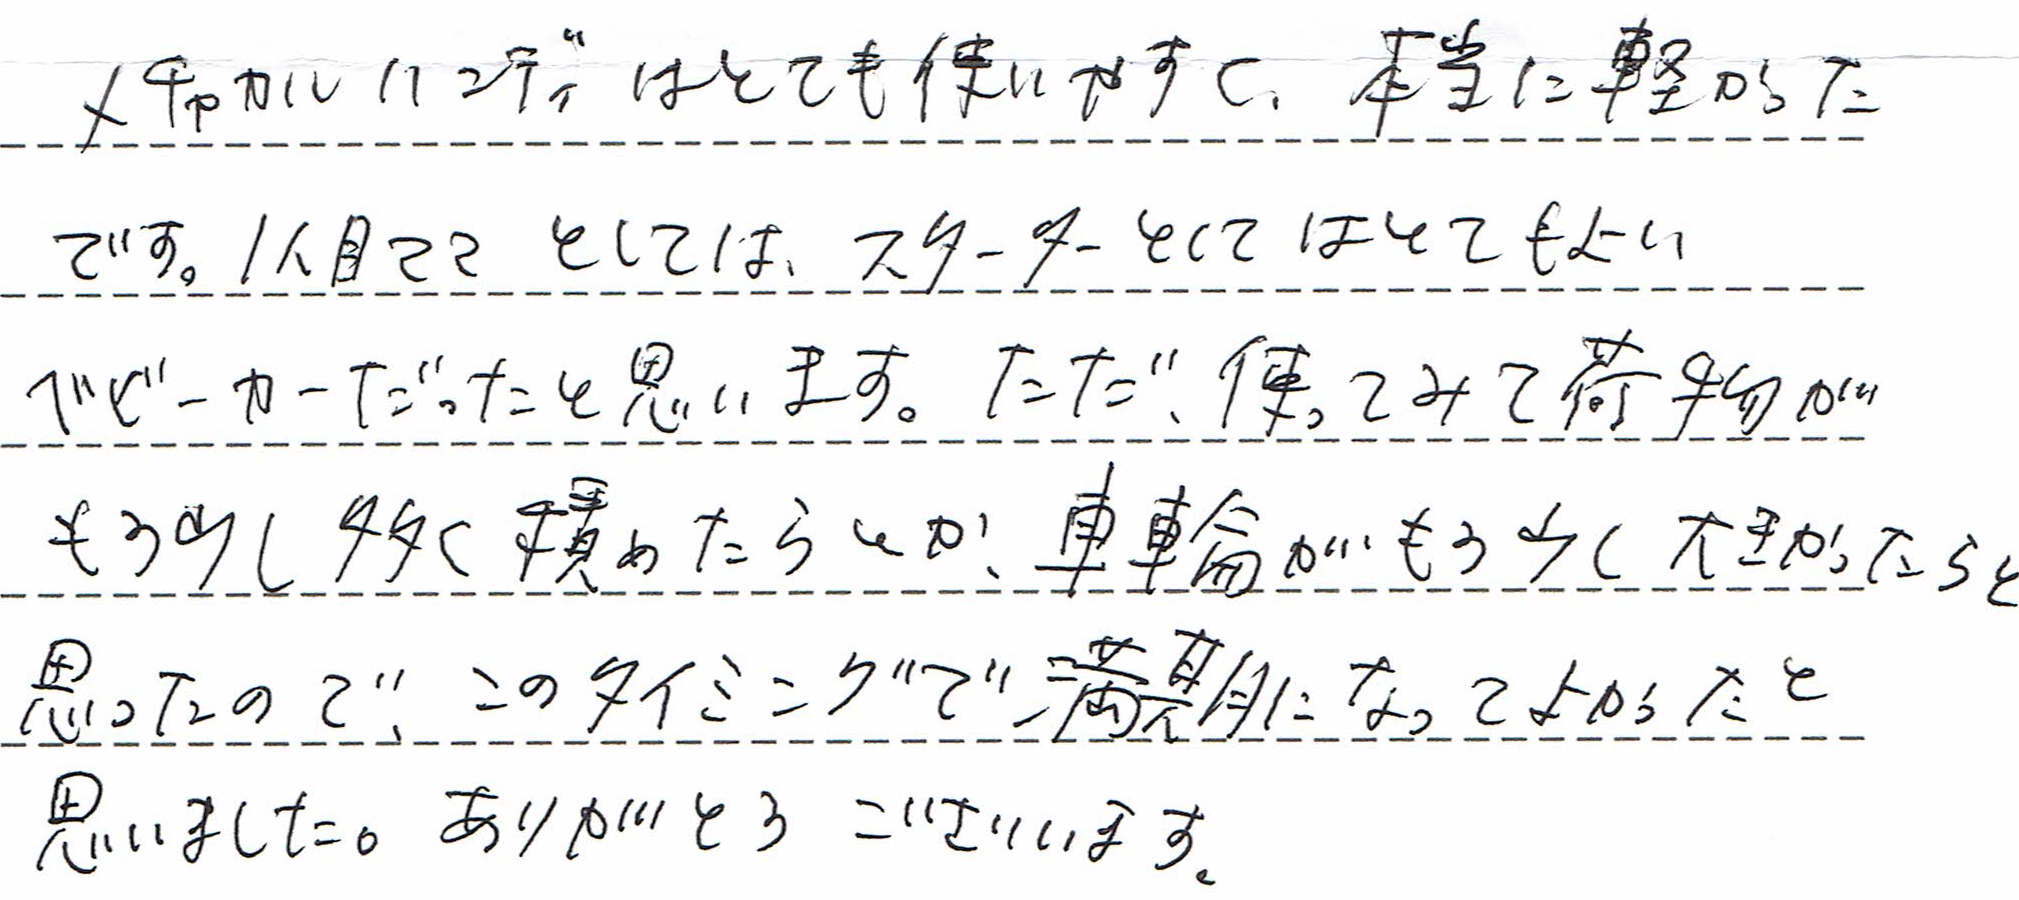 メチャカルハンディはとても使いやすく、本当に軽かった
です。1人目ママとしては、スターターとしてはとてもよい
ベビーカーだったと思います。ただ、使ってみて荷物が
もう少し多く積めたらとか、車輪がもう少し大きかったらと
思ったので、このタイミングで満期になってよかったと
思いました。ありがとうございます。